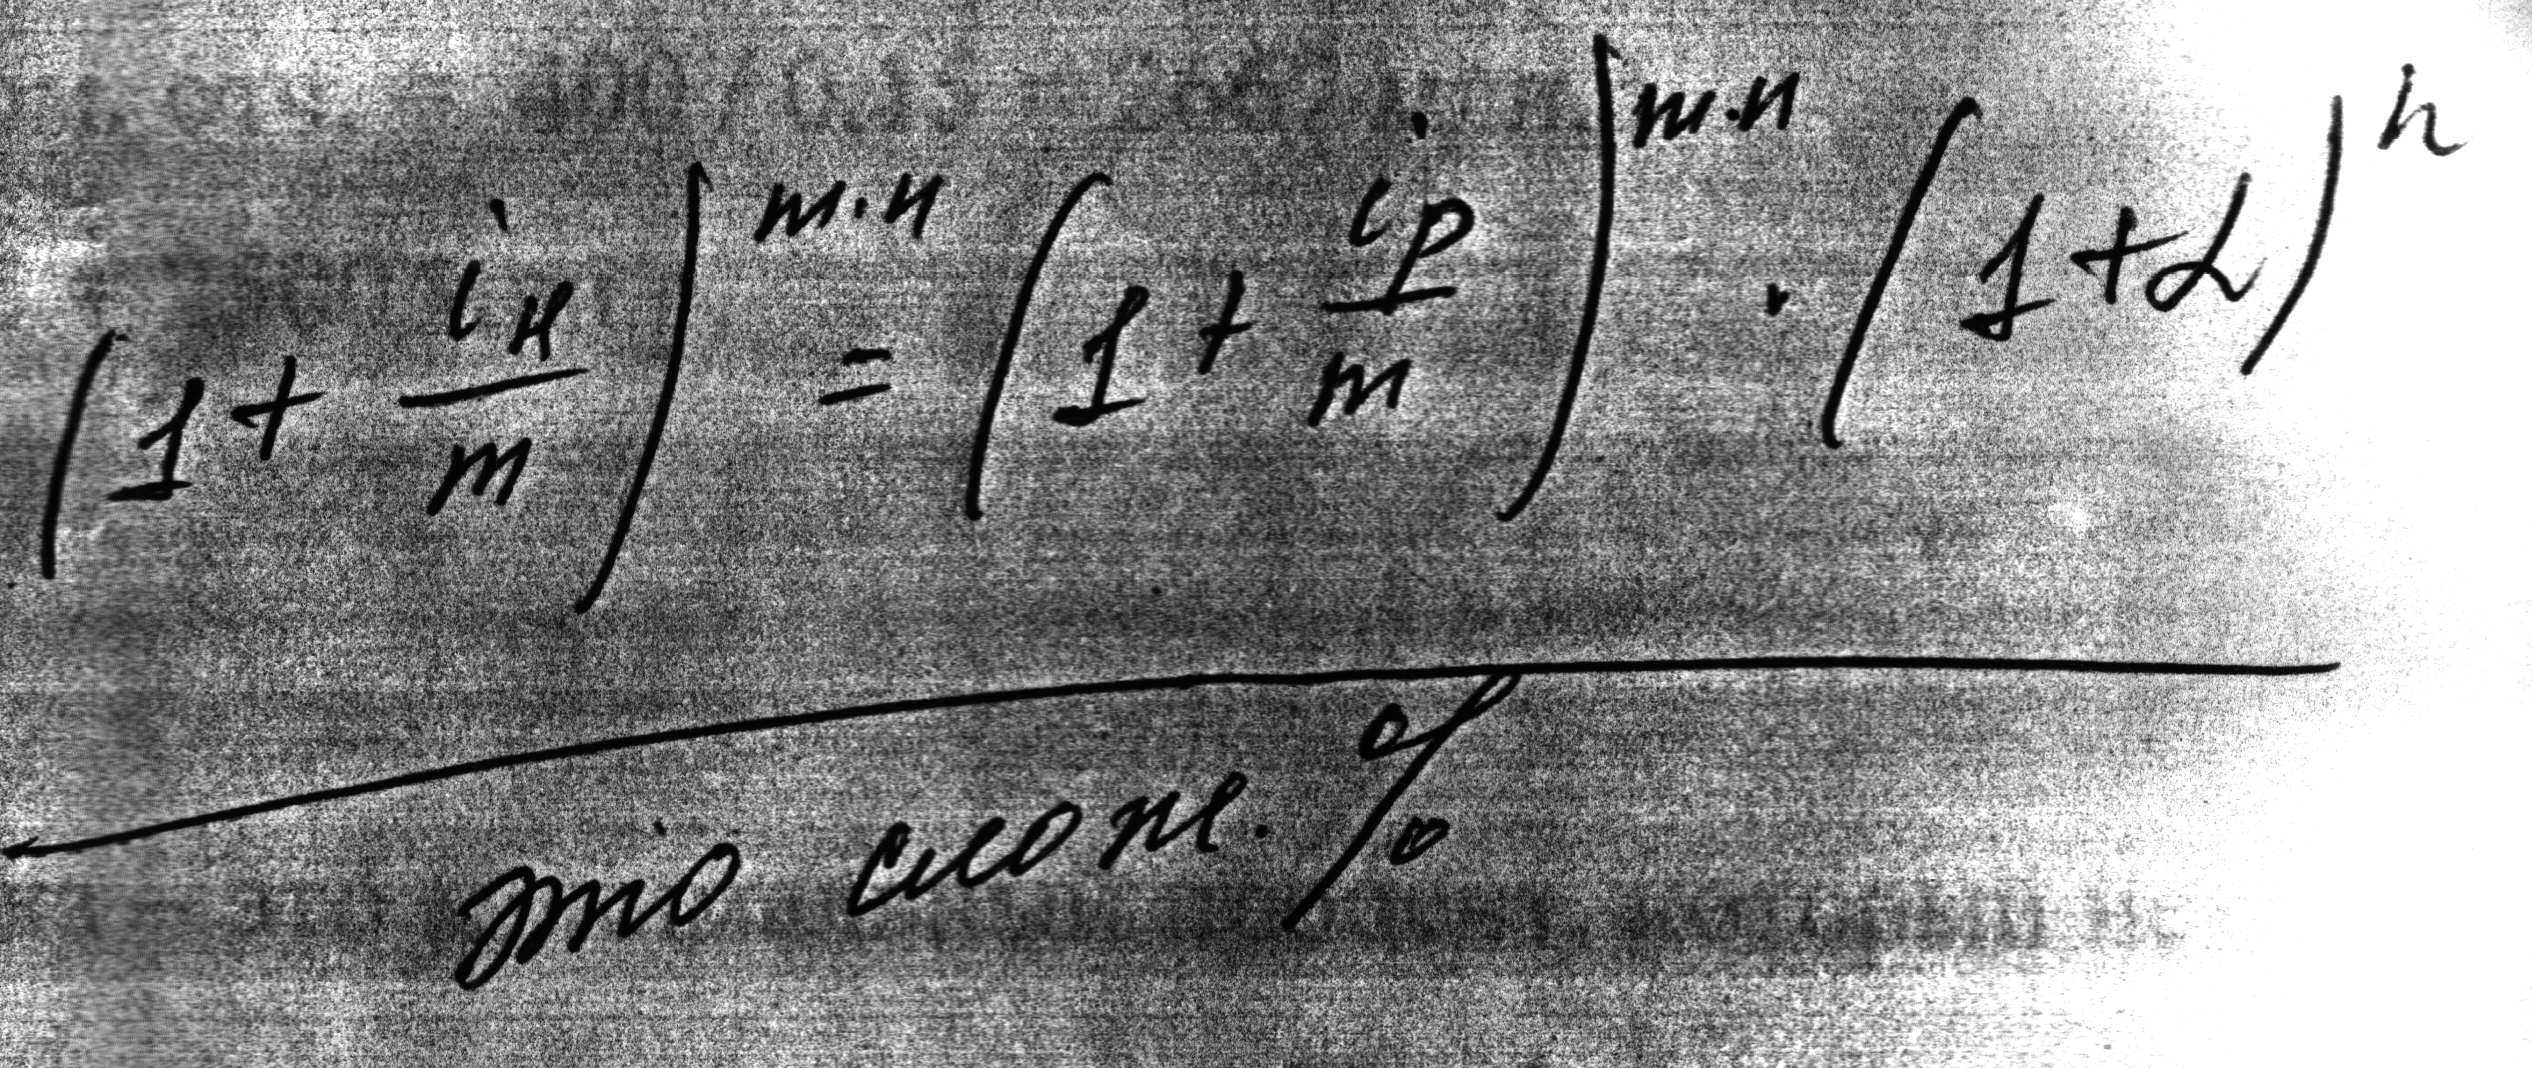 (1 + iн/m)^m·n = (1 + ip/m)^m·n · (1 + α)^n
это слож. %